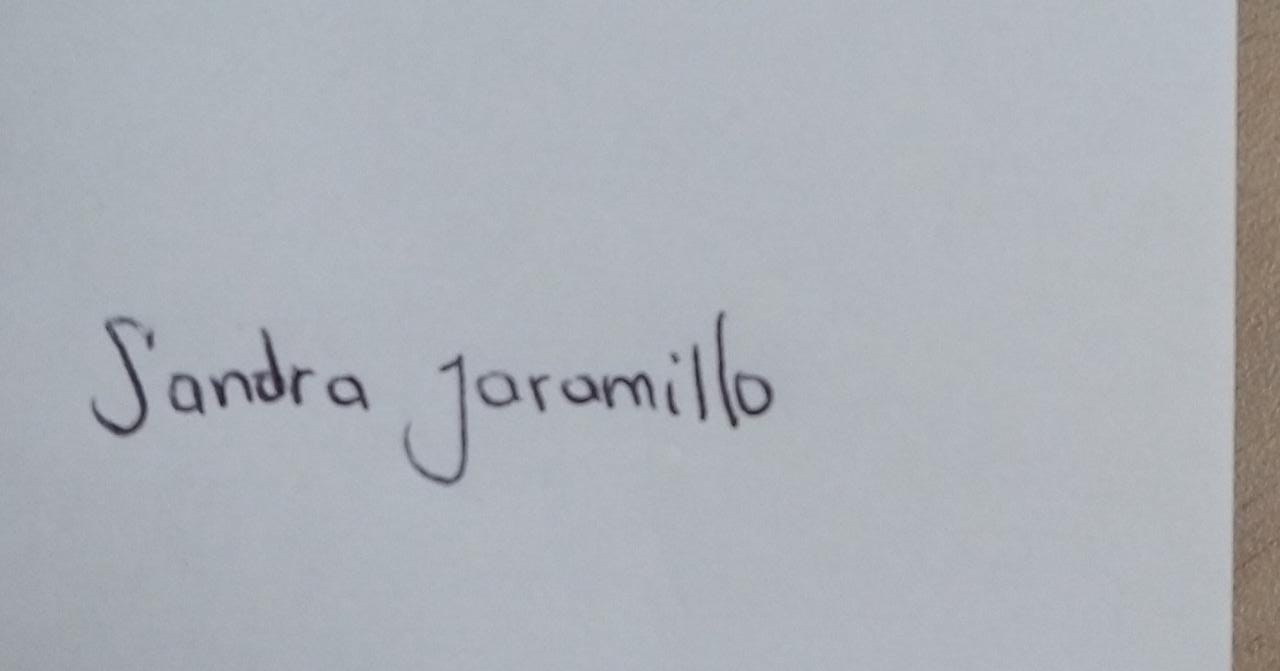 Sandra Jaramillo